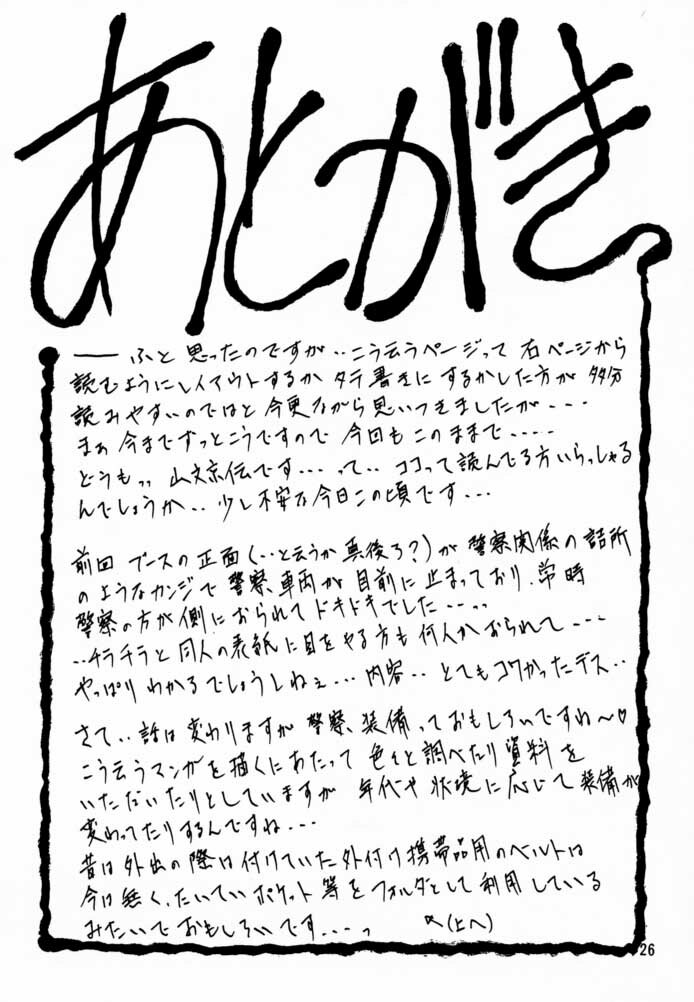 あとがき
── ふと思ったのですが‥こう云うページって右ページから
読むようにレイアウトするかタテ書きにするかした方が多分
読みやすいのではと今更ながら思いつきましたが・・・
まぁ今までずっとこうですので今回もこのままで・・・・・
どうもっっ山文京伝です・・・って‥ココって読んでる方いらっしゃる
んでしょうか‥少し不安な今日この頃です・・・
前回ブースの正面(‥と云うか真後ろ?)が警察関係の詰所
のようなカンジで警察車両が目前に止まっており、常時
警察の方が側におられてドキドキでした・・・っっ
‥チラチラと同人の表紙に目をやる方も何人かおられて・・・
やっぱりわかるでしょうしねぇ・・・内容‥とてもコワかったデス‥
さて‥話は変わりますが警察装備っておもしろいですね〜♡
こう云うマンガを描くにあたって色々と調べたり資料を
いただいたりとしていますが年代や状境に応じて装備が
変わってたりするんですね・・・
昔は外出の際は付けていた外付け携帯品用のベルトは
今は無く、たいていポケット等をフォルダとして利用している
みたいでおもしろいです・・・・っ
(上へ)
26